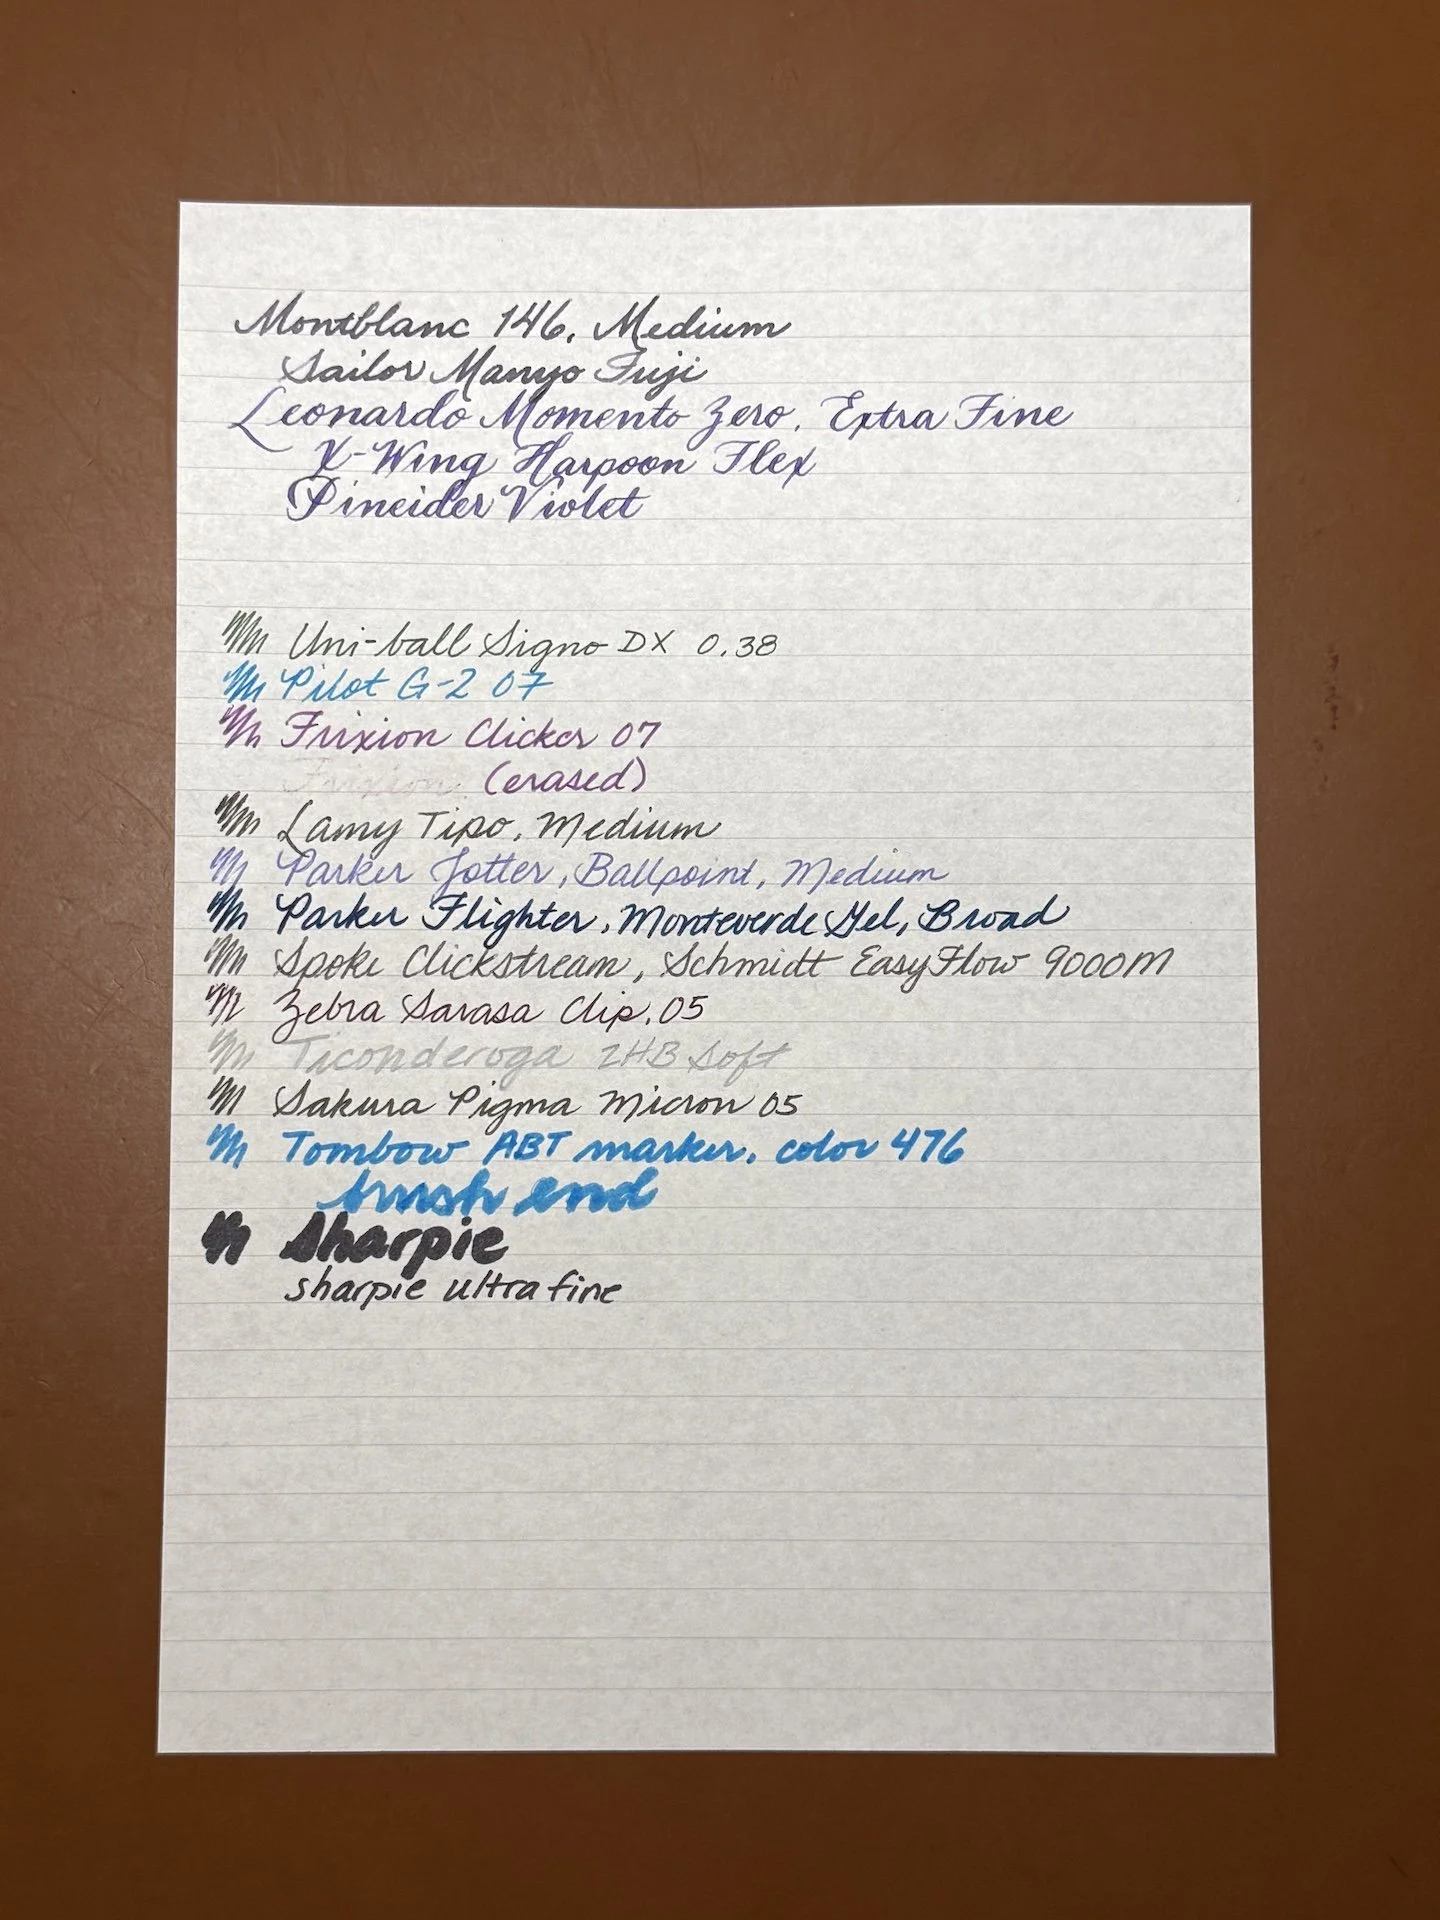 Montblanc 146, Medium
Sailor Manyo Fuji
Leonardo Momento Zero, Extra Fine
X-Wing Harpoon Flex
Pineider Violet
Uni-ball Signo DX 0.38
Pilot G-2 07
Frixion Clicker 07
Frixion (erased)
Lamy Tipo, Medium
Parker Jotter, Ballpoint, Medium
Parker Flighter, Monteverde Gel, Broad
Spoke Clickstream, Schmidt EasyFlow 9000M
Zebra Sarasa Clip .05
Ticonderoga 2HB Soft
Sakura Pigma Micron 05
Tombow ABT marker, color 476
brush end
Sharpie
sharpie ultra fine